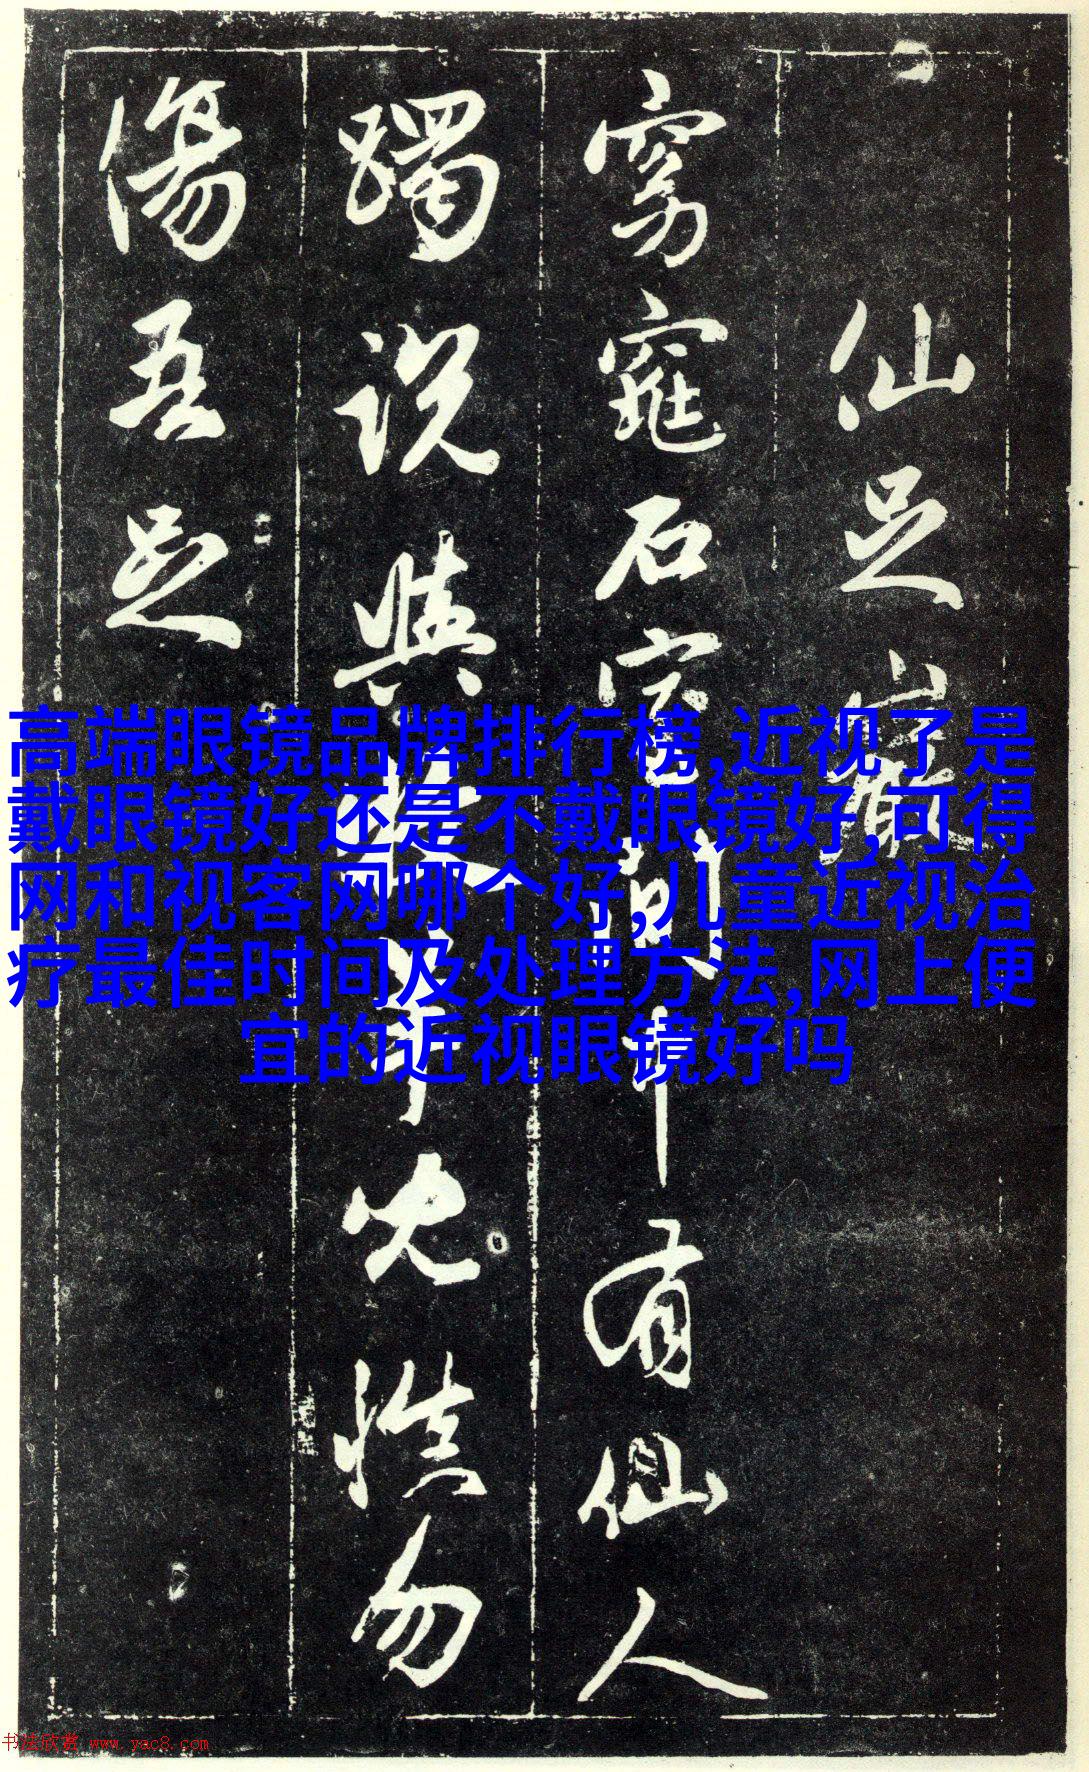 仙足巖
窈窕石室間中有仙人
躅說與牧羊兒慎勿
傷吾足
高端眼镜品牌排行榜,近视了是
戴眼镜好还是不戴眼镜好,可得
网和视客网哪个好,儿童近视治
疗最佳时间及处理方法,网上便
宜的近视眼镜好吗
书法欣赏 www.yac8.com